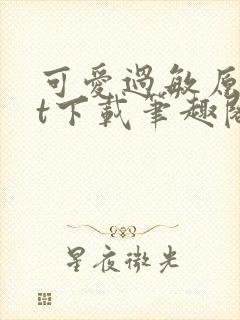 可愛過敏原
t下載筆趣閣
星夜微光